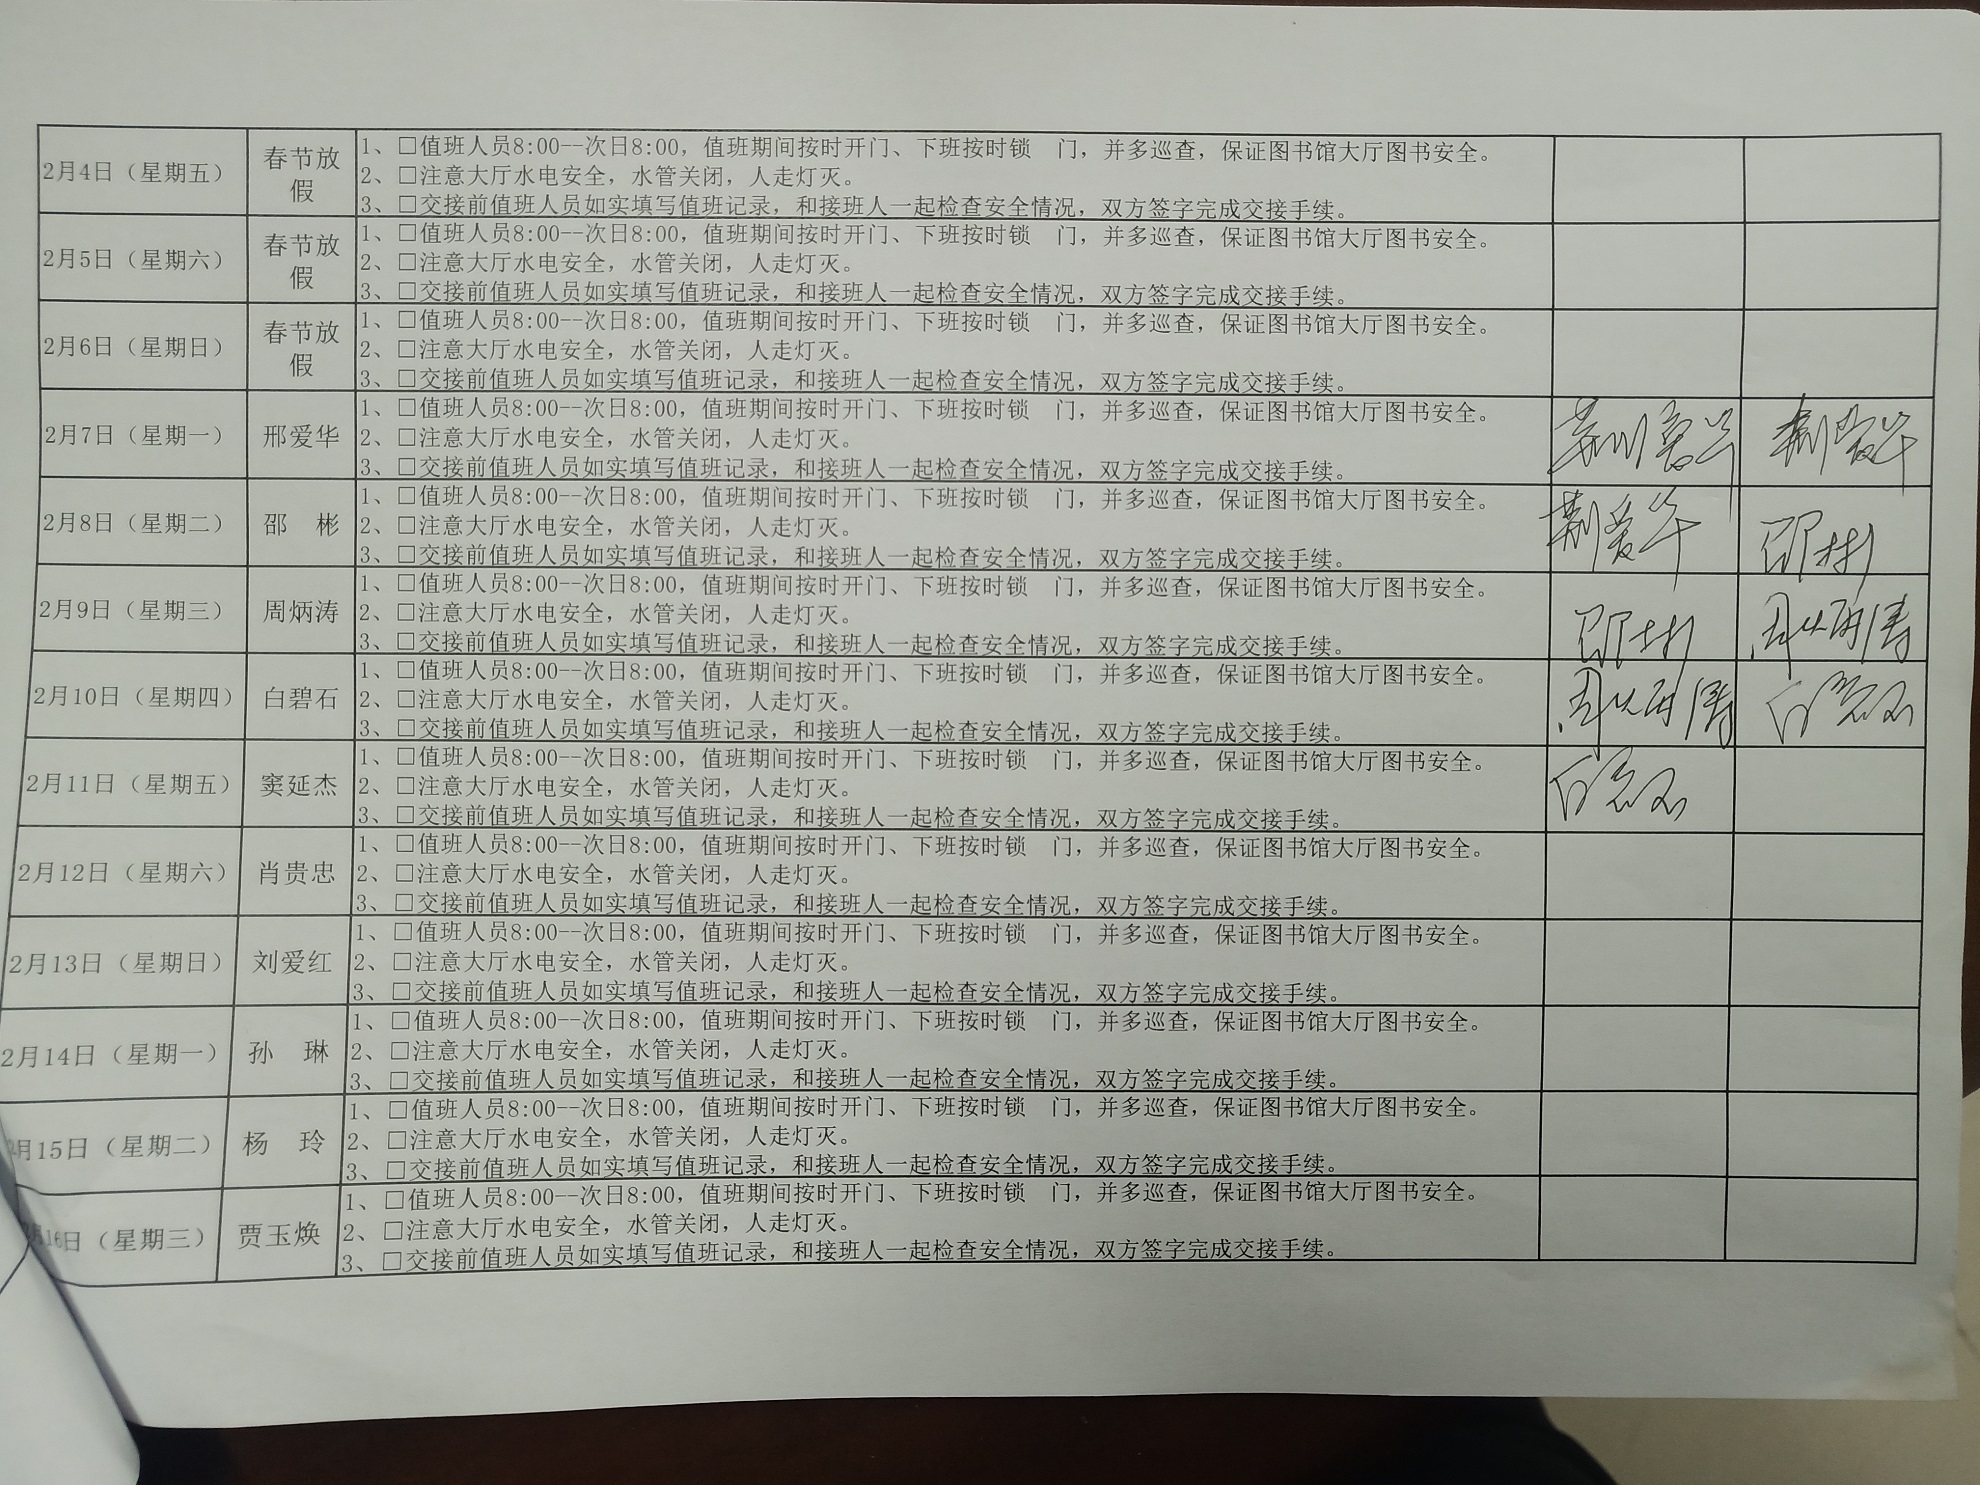 2月4日（星期五）
春节放
假
1、□值班人员8:00--次日8:00，值班期间按时开门、下班按时锁　门，并多巡查，保证图书馆大厅图书安全。
2、□注意大厅水电安全，水管关闭，人走灯灭。
3、□交接前值班人员如实填写值班记录，和接班人一起检查安全情况，双方签字完成交接手续。
2月5日（星期六）
春节放
假
1、□值班人员8:00--次日8:00，值班期间按时开门、下班按时锁　门，并多巡查，保证图书馆大厅图书安全。
2、□注意大厅水电安全，水管关闭，人走灯灭。
3、□交接前值班人员如实填写值班记录，和接班人一起检查安全情况，双方签字完成交接手续。
2月6日（星期日）
春节放
假
1、□值班人员8:00--次日8:00，值班期间按时开门、下班按时锁　门，并多巡查，保证图书馆大厅图书安全。
2、□注意大厅水电安全，水管关闭，人走灯灭。
3、□交接前值班人员如实填写值班记录，和接班人一起检查安全情况，双方签字完成交接手续。
2月7日（星期一）
邢爱华
1、□值班人员8:00--次日8:00，值班期间按时开门、下班按时锁　门，并多巡查，保证图书馆大厅图书安全。
2、□注意大厅水电安全，水管关闭，人走灯灭。
3、□交接前值班人员如实填写值班记录，和接班人一起检查安全情况，双方签字完成交接手续。
2月8日（星期二）
邵　彬
1、□值班人员8:00--次日8:00，值班期间按时开门、下班按时锁　门，并多巡查，保证图书馆大厅图书安全。
2、□注意大厅水电安全，水管关闭，人走灯灭。
3、□交接前值班人员如实填写值班记录，和接班人一起检查安全情况，双方签字完成交接手续。
荆爱华
邵彬
2月9日（星期三）
周炳涛
1、□值班人员8:00--次日8:00，值班期间按时开门、下班按时锁　门，并多巡查，保证图书馆大厅图书安全。
2、□注意大厅水电安全，水管关闭，人走灯灭。
3、□交接前值班人员如实填写值班记录，和接班人一起检查安全情况，双方签字完成交接手续。
邵彬
周炳涛
2月10日（星期四）
白碧石
1、□值班人员8:00--次日8:00，值班期间按时开门、下班按时锁　门，并多巡查，保证图书馆大厅图书安全。
2、□注意大厅水电安全，水管关闭，人走灯灭。
3、□交接前值班人员如实填写值班记录，和接班人一起检查安全情况，双方签字完成交接手续。
周炳涛
白碧石
2月11日（星期五）
窦延杰
1、□值班人员8:00--次日8:00，值班期间按时开门、下班按时锁　门，并多巡查，保证图书馆大厅图书安全。
2、□注意大厅水电安全，水管关闭，人走灯灭。
3、□交接前值班人员如实填写值班记录，和接班人一起检查安全情况，双方签字完成交接手续。
白碧石
2月12日（星期六）
肖贵忠
1、□值班人员8:00--次日8:00，值班期间按时开门、下班按时锁　门，并多巡查，保证图书馆大厅图书安全。
2、□注意大厅水电安全，水管关闭，人走灯灭。
3、□交接前值班人员如实填写值班记录，和接班人一起检查安全情况，双方签字完成交接手续。
2月13日（星期日）
刘爱红
1、□值班人员8:00--次日8:00，值班期间按时开门、下班按时锁　门，并多巡查，保证图书馆大厅图书安全。
2、□注意大厅水电安全，水管关闭，人走灯灭。
3、□交接前值班人员如实填写值班记录，和接班人一起检查安全情况，双方签字完成交接手续。
2月14日（星期一）
孙　琳
1、□值班人员8:00--次日8:00，值班期间按时开门、下班按时锁　门，并多巡查，保证图书馆大厅图书安全。
2、□注意大厅水电安全，水管关闭，人走灯灭。
3、□交接前值班人员如实填写值班记录，和接班人一起检查安全情况，双方签字完成交接手续。
2月15日（星期二）
杨　玲
1、□值班人员8:00--次日8:00，值班期间按时开门、下班按时锁　门，并多巡查，保证图书馆大厅图书安全。
2、□注意大厅水电安全，水管关闭，人走灯灭。
3、□交接前值班人员如实填写值班记录，和接班人一起检查安全情况，双方签字完成交接手续。
2月16日（星期三）
贾玉焕
1、□值班人员8:00--次日8:00，值班期间按时开门、下班按时锁　门，并多巡查，保证图书馆大厅图书安全。
2、□注意大厅水电安全，水管关闭，人走灯灭。
3、□交接前值班人员如实填写值班记录，和接班人一起检查安全情况，双方签字完成交接手续。